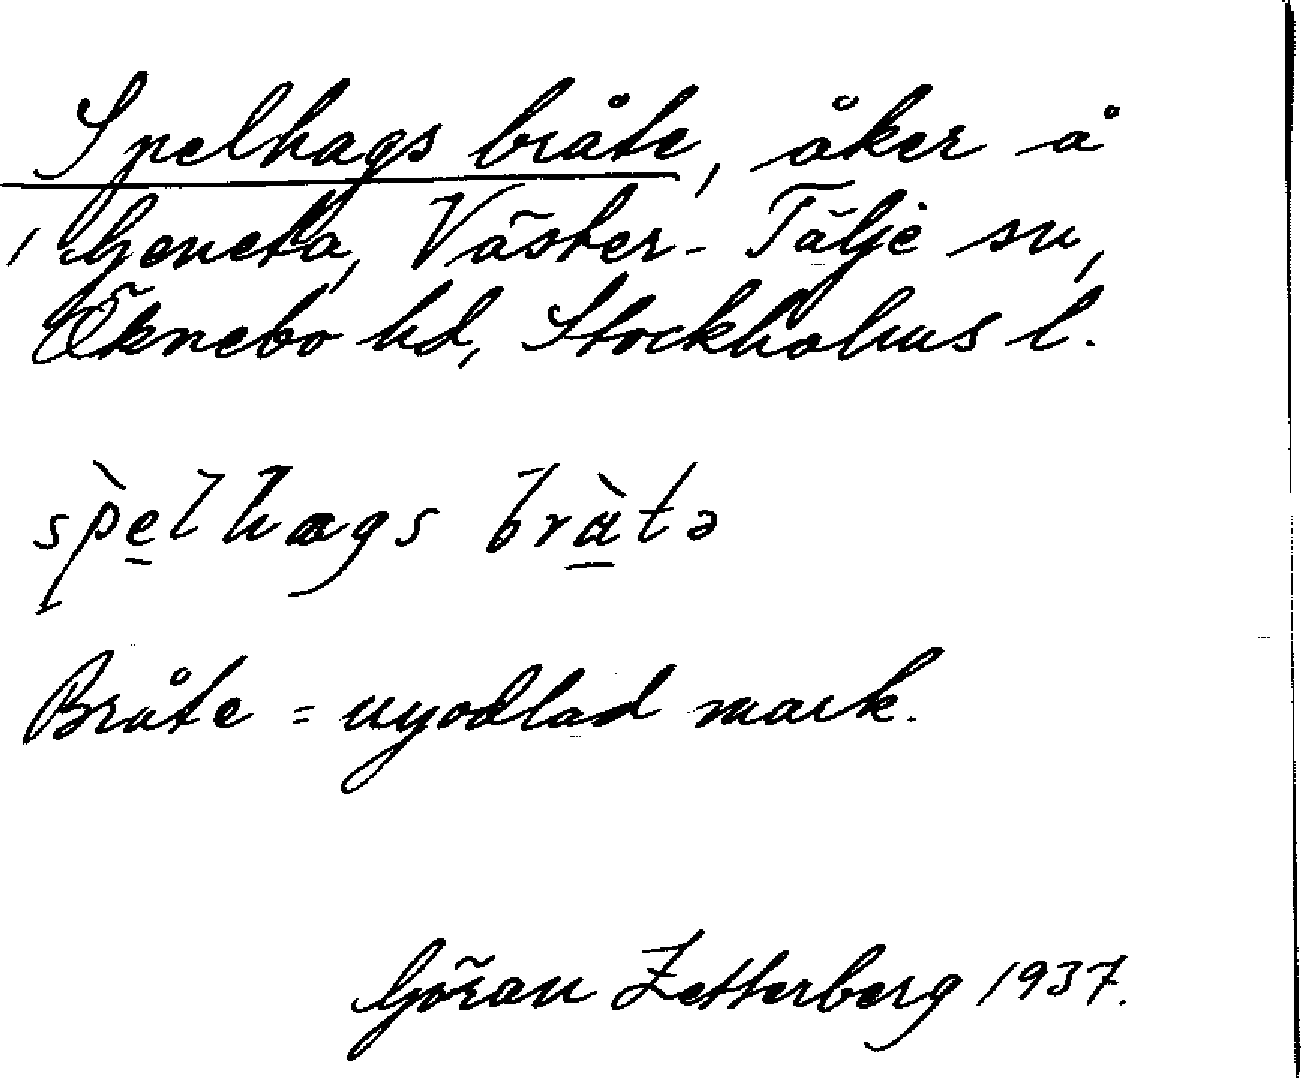 Spelhags bråte, åker å
Geneta, Väster-Tälje sn,
Öknebo hd, Stockholms l.
spèlhags bràtə
Bråte = nyodlad mark.
Göran Zetterberg 1937.